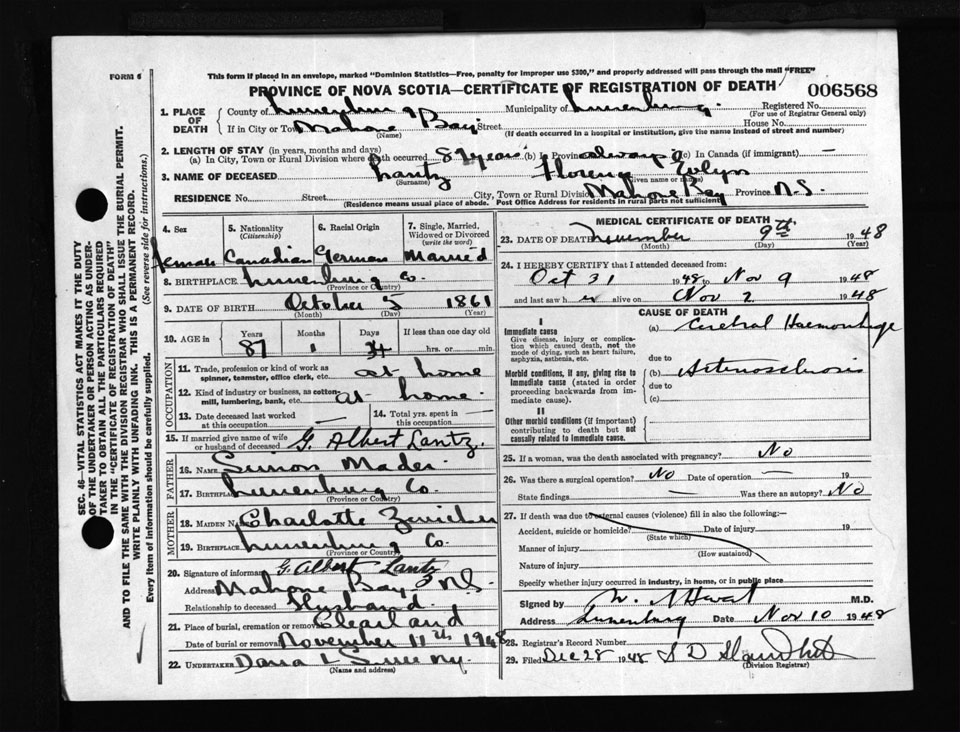 FORM 6
This form if placed in an envelope, marked "Dominion Statistics—Free, penalty for improper use $300," and properly addressed will pass through the mail "FREE"
PROVINCE OF NOVA SCOTIA—CERTIFICATE OF REGISTRATION OF DEATH
006568
1. PLACE OF DEATH
County of Lunenburg Municipality of Lunenburg. Registered No.
(For use of Registrar General only)
If in City or Town Mahone Bay Street House No.
(Name) (If death occurred in a hospital or institution, give the name instead of street and number)
2. LENGTH OF STAY (in years, months and days)
(a) In City, Town or Rural Division where death occurred 87 years (b) in Province always (c) In Canada (if immigrant) —
3. NAME OF DECEASED Lantz Florence Evlyn
(Surname) (Given name or names)
RESIDENCE No. Street City, Town or Rural Division Mahone Bay Province N.S.
(Residence means usual place of abode. Post Office Address for residents in rural parts not sufficient)
4. Sex
5. Nationality (Citizenship)
6. Racial Origin
7. Single, Married, Widowed or Divorced (write the word)
Female Canadian German Married
8. BIRTHPLACE Lunenburg Co.
(Province or Country)
9. DATE OF BIRTH October 5 1861
(Month) (Day) (Year)
10. AGE in Years Months Days If less than one day old
87 1 hrs. or min.
OCCUPATION
11. Trade, profession or kind of work as spinner, teamster, office clerk, etc. at home
12. Kind of industry or business, as cotton mill, lumbering, bank, etc. at home.
13. Date deceased last worked at this occupation —
14. Total yrs. spent in this occupation —
15. If married give name of wife or husband of deceased G. Albert Lantz.
FATHER
16. NAME Simon Mader
17. Birthplace Lunenburg Co.
(Province or Country)
MOTHER
18. MAIDEN NAME Charlotte
19. BIRTHPLACE Lunenburg Co.
(Province or Country)
20. Signature of informant G. Albert Lantz
Address Mahone Bay N.S.
Relationship to deceased Husband.
21. Place of burial, cremation or removal Clearland
Date of burial or removal November 11th 1948
22. UNDERTAKER
(Name and address)
MEDICAL CERTIFICATE OF DEATH
23. DATE OF DEATH November 9th 1948
(Month) (Day) (Year)
24. I HEREBY CERTIFY that I attended deceased from:
Oct 31 1948 to Nov 9 1948
and last saw her alive on Nov 2 1948
CAUSE OF DEATH
I
Immediate cause (a) Cerebral Haemorrhage
Give disease, injury or complication which caused death, not the mode of dying, such as heart failure, asphyxia, asthenia, etc.
due to
Morbid conditions, if any, giving rise to immediate cause (stated in order proceeding backwards from immediate cause).
(b) Arteriosclerosis
due to
(c)
II
Other morbid conditions (if important) contributing to death but not causally related to immediate cause.
25. If a woman, was the death associated with pregnancy? No
26. Was there a surgical operation? No Date of operation — 19
State findings — Was there an autopsy? No
27. If death was due to external causes (violence) fill in also the following:—
Accident, suicide or homicide? Date of injury 19
(State which)
Manner of injury
(How sustained)
Nature of injury
Specify whether injury occurred in industry, in home, or in public place
Signed by M.D.
Address Lunenburg Date Nov 10 1948
28. Registrar's Record Number
29. Filed Dec 28 1948 S D
(Division Registrar)
SEC. 46—VITAL STATISTICS ACT MAKES IT THE DUTY
OF THE UNDERTAKER OR PERSON ACTING AS UNDER-
TAKER TO OBTAIN ALL THE PARTICULARS REQUIRED
IN THE "CERTIFICATE OF REGISTRATION OF DEATH"
AND TO FILE THE SAME WITH THE DIVISION REGISTRAR WHO SHALL ISSUE THE BURIAL PERMIT.
WRITE PLAINLY WITH UNFADING INK. THIS IS A PERMANENT RECORD.
Every item of information should be carefully supplied. (See reverse side for instructions.)